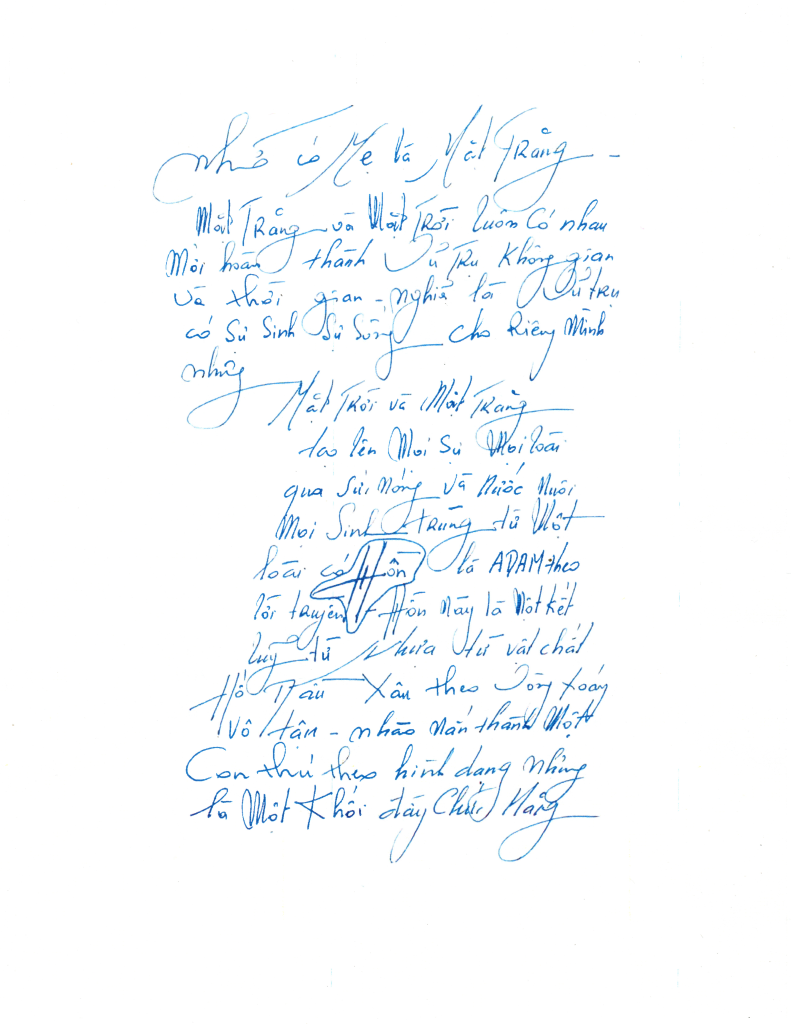 Nhớ có Mẹ là Mặt Trăng -
Mặt Trăng và Mặt Trời luôn có nhau
Mới hoàn thành Vũ Trụ Không gian
và thời gian - nghĩa là Vũ trụ
có Sự Sinh Sự Sống cho Riêng Mình
những
Mặt Trời và Mặt Trăng
tạo lên Mọi Sự Mọi loài
qua Sức Nóng và Nước Nuôi
Mọi Sinh trưởng từ Một
loài có Hồn là ADAM theo
lối truyền - Hồn Này là Một kết
luỹ từ Nhựa từ vật chất
Hố Xấu theo Vòng Xoáy
Vô tận - nhào Nắn thành Một
Con thú theo hình dạng những
là Một Khối đầy Chức Năng